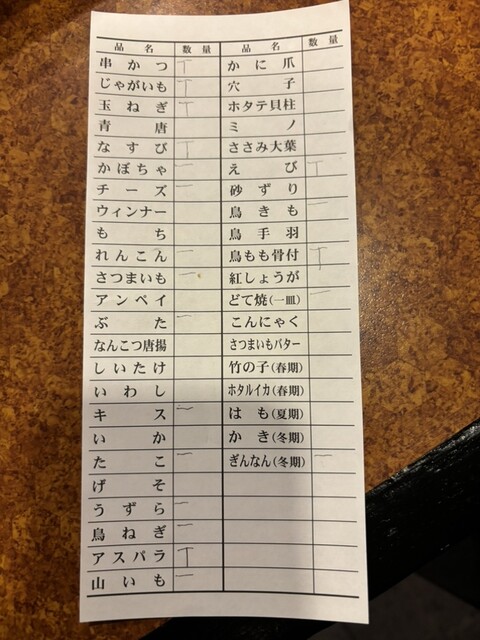 品名 数量 品名 数量
串かつ 丅 かに爪
じゃがいも 丅 穴子
玉ねぎ 丅 ホタテ貝柱
青唐 ミノ
なすび 丅 ささみ大葉
かぼちゃ 一 えび 丅
チーズ 一 砂ずり
ウィンナー 鳥きも 一
もち 鳥手羽
れんこん 一 鳥もも骨付 丅
さつまいも 一 紅しょうが
アンペイ どて焼(一皿) 一
ぶた 一 こんにゃく
なんこつ唐揚 さつまいもバター
しいたけ 竹の子(春期)
いわし ホタルイカ(春期)
キス 一 はも(夏期)
いか かき(冬期)
たこ 一 ぎんなん(冬期) 一
げそ
うずら 一
鳥ねぎ 一
アスパラ 丅
山いも 一